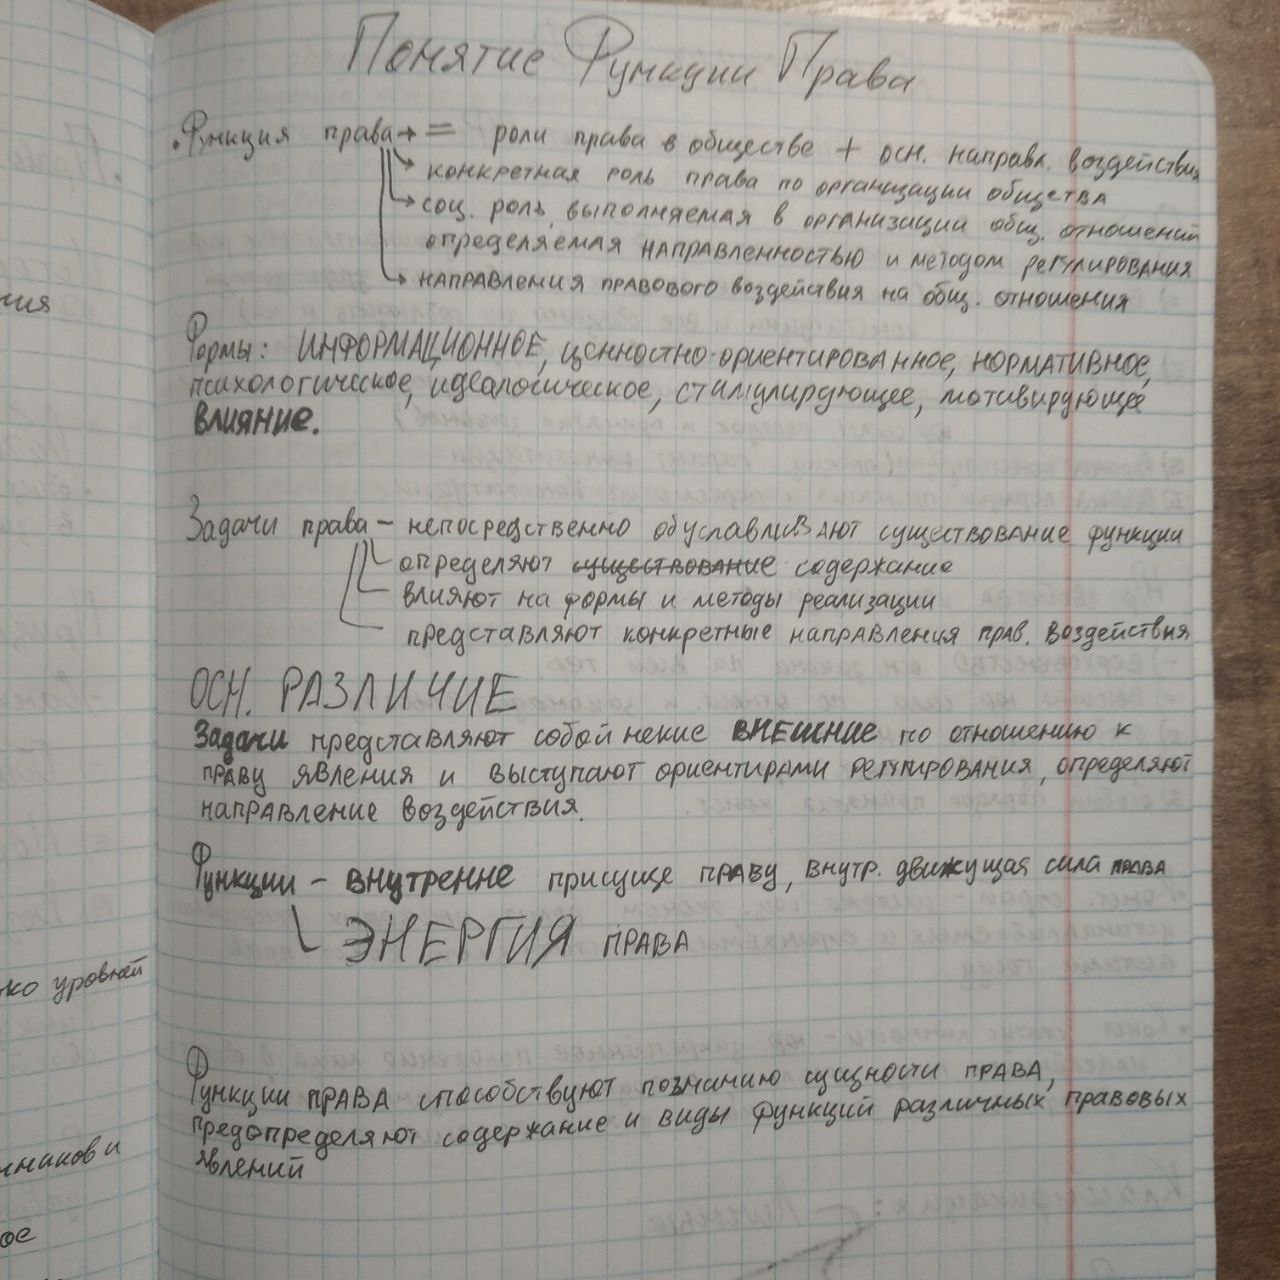 Понятие Функции Права
. Функция права → = роли права в обществе + осн. направл. воздействия
конкретная роль права по организации общества
соц. роль, выполняемая в организации общ. отношений
определяемая направленностью и методом регулирования
направления правового воздействия на общ. отношения
Формы: ИНФОРМАЦИОННОЕ, ценностно-ориентированное, НОРМАТИВНОЕ,
психологическое, идеалогическое, стимулирующее, мотивирующее
ВЛИЯНИЕ.
Задачи права – непосредственно обуславливают существование функции
определяют существование содержание
влияют на формы и методы реализации
представляют конкретные направления прав. воздействия
ОСН. РАЗЛИЧИЕ
Задачи представляют собой некие ВНЕШНИЕ по отношению к
праву явления и выступают ориентирами регулирования, определяют
направление воздействия.
Функции – внутренне присуще праву, внутр. движущая сила права
ЭНЕРГИЯ права
Функции права способствуют познанию сущности права,
предопределяют содержание и виды функций различных правовых
явлений
ния
ко уровней
ое